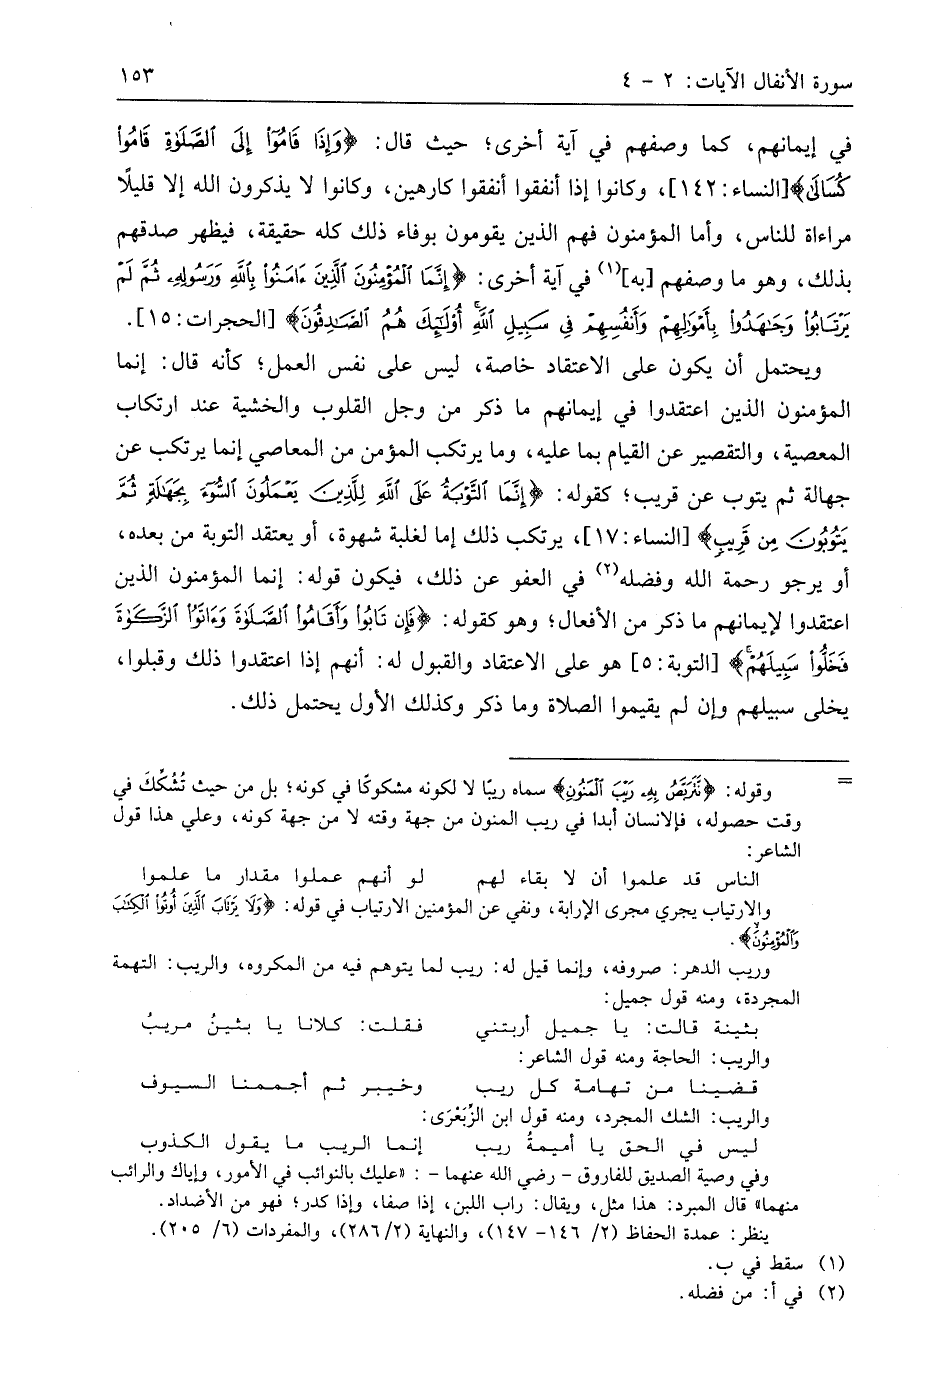 سورة الأنفال الآيات: ٢ - ٤ ١٥٣
في إيمانهم، كما وصفهم في آية أخرى؛ حيث قال: ﴿وَإِذَا قَامُوٓا۟ إِلَى ٱلصَّلَوٰةِ قَامُوا۟
كُسَالَىٰ﴾[النساء: ١٤٢]، وكانوا إذا أنفقوا أنفقوا كارهين، وكانوا لا يذكرون الله إلا قليلًا
مراءاة للناس، وأما المؤمنون فهم الذين يقومون بوفاء ذلك كله حقيقة، فيظهر صدقهم
بذلك، وهو ما وصفهم [به](١) في آية أخرى: ﴿إِنَّمَا ٱلْمُؤْمِنُونَ ٱلَّذِينَ ءَامَنُوا۟ بِٱللَّهِ وَرَسُولِهِۦ ثُمَّ لَمْ
يَرْتَابُوا۟ وَجَٰهَدُوا۟ بِأَمْوَٰلِهِمْ وَأَنفُسِهِمْ فِى سَبِيلِ ٱللَّهِۚ أُو۟لَٰٓئِكَ هُمُ ٱلصَّٰدِقُونَ﴾ [الحجرات: ١٥].
ويحتمل أن يكون على الاعتقاد خاصة، ليس على نفس العمل؛ كأنه قال: إنما
المؤمنون الذين اعتقدوا في إيمانهم ما ذكر من وجل القلوب والخشية عند ارتكاب
المعصية، والتقصير عن القيام بما عليه، وما يرتكب المؤمن من المعاصي إنما يرتكب عن
جهالة ثم يتوب عن قريب؛ كقوله: ﴿إِنَّمَا ٱلتَّوْبَةُ عَلَى ٱللَّهِ لِلَّذِينَ يَعْمَلُونَ ٱلسُّوٓءَ بِجَهَٰلَةٍ ثُمَّ
يَتُوبُونَ مِن قَرِيبٍ﴾ [النساء: ١٧]، يرتكب ذلك إما لغلبة شهوة، أو يعتقد التوبة من بعده،
أو يرجو رحمة الله وفضله(٢) في العفو عن ذلك، فيكون قوله: إنما المؤمنون الذين
اعتقدوا لإيمانهم ما ذكر من الأفعال؛ وهو كقوله: ﴿فَإِن تَابُوا۟ وَأَقَامُوا۟ ٱلصَّلَوٰةَ وَءَاتَوُا۟ ٱلزَّكَوٰةَ
فَخَلُّوا۟ سَبِيلَهُمْۚ﴾ [التوبة: ٥] هو على الاعتقاد والقبول له: أنهم إذا اعتقدوا ذلك وقبلوا،
يخلى سبيلهم وإن لم يقيموا الصلاة وما ذكر وكذلك الأول يحتمل ذلك.
= وقوله: ﴿نَّتَرَبَّصُ بِهِۦ رَيْبَ ٱلْمَنُونِ﴾ سماه ريبًا لا لكونه مشكوكًا في كونه؛ بل من حيث تُشُكِّكَ في
وقت حصوله، فإلانسان أبدا في ريب المنون من جهة وقته لا من جهة كونه، وعلي هذا قول
الشاعر:
الناس قد علموا أن لا بقاء لهم لو أنهم عملوا مقدار ما علموا
والارتياب يجري مجرى الإرابة، ونفي عن المؤمنين الارتياب في قوله: ﴿وَلَا يَرْتَابَ ٱلَّذِينَ أُوتُوا۟ ٱلْكِتَٰبَ
وَٱلْمُؤْمِنُونَۙ﴾.
وريب الدهر: صروفه، وإنما قيل له: ريب لما يتوهم فيه من المكروه، والريب: التهمة
المجردة، ومنه قول جميل:
بثينة قالت: يا جميل أربتني فقلت: كلانا يا بثينُ مريبُ
والريب: الحاجة ومنه قول الشاعر:
قضينا من تهامة كل ريب وخيبر ثم أجممنا السيوف
والريب: الشك المجرد، ومنه قول ابن الزِّبَعْرَى:
ليس في الحق يا أميمةُ ريب إنما الريب ما يقول الكذوب
وفي وصية الصديق للفاروق - رضي الله عنهما - : «عليك بالنوائب في الأمور، وإياك والرائب
منهما» قال المبرد: هذا مثل، ويقال: راب اللبن، إذا صفا، وإذا كدر؛ فهو من الأضداد.
ينظر: عمدة الحفاظ (٢/ ١٤٦- ١٤٧)، والنهاية (٢/ ٢٨٦)، والمفردات (٦/ ٢٠٥).
(١) سقط في ب.
(٢) في أ: من فضله.